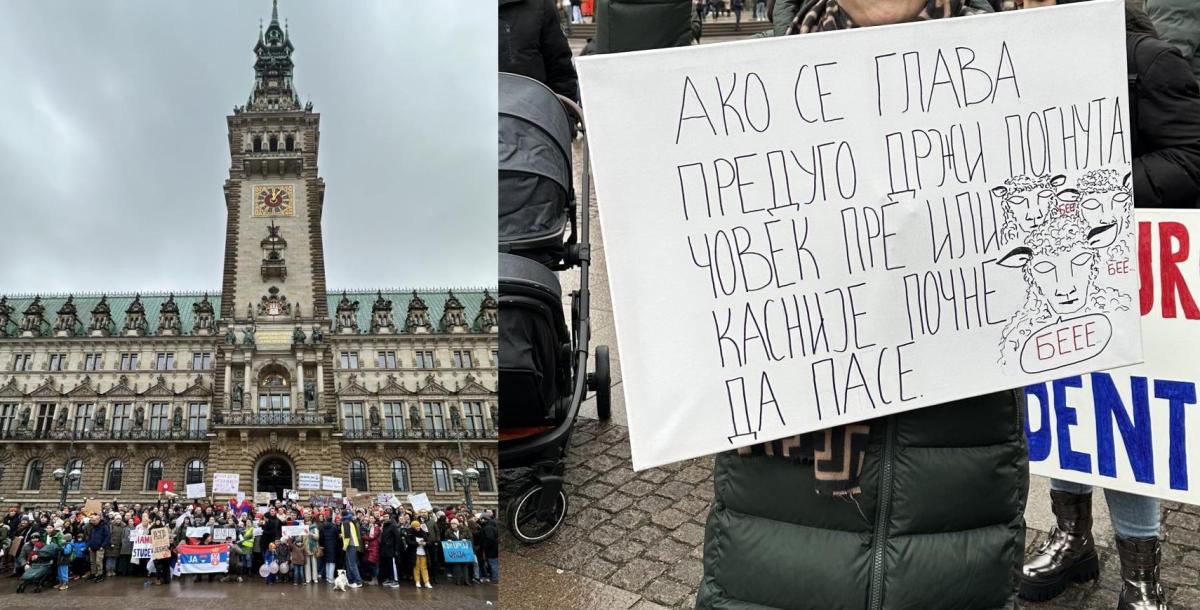 АКО СЕ ГЛАВА
ПРЕДУГО ДРЖИ ПОГНУТА
ЧОВЕК ПРЕ ИЛИ
КАСНИЈЕ ПОЧНЕ
ДА ПАСЕ.
БЕЕ
БЕЕ...
БЕЕЕ...
UR
DENT